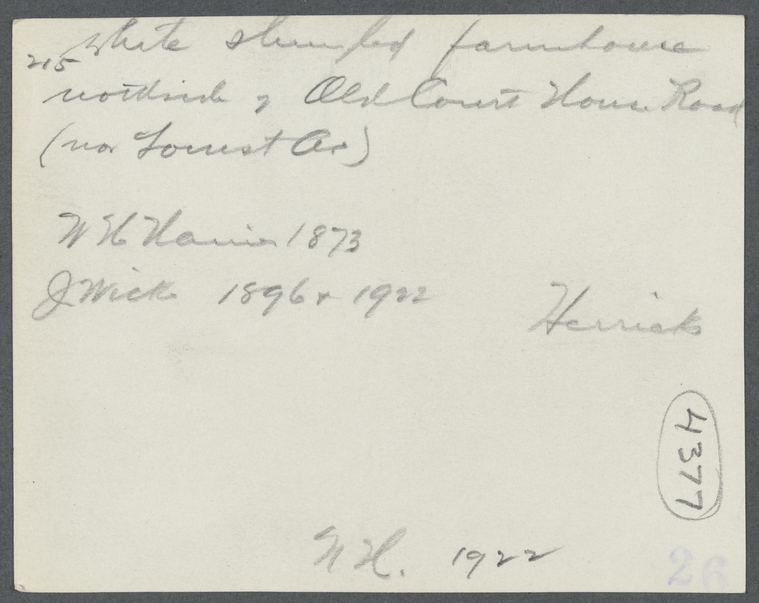 White shingled farmhouse
215
northside of Old Court House Road
(nor Locust Av)
W H Harris 1873
J Wicks 1896 + 1922
Herricks
4377
N H. 1922
26